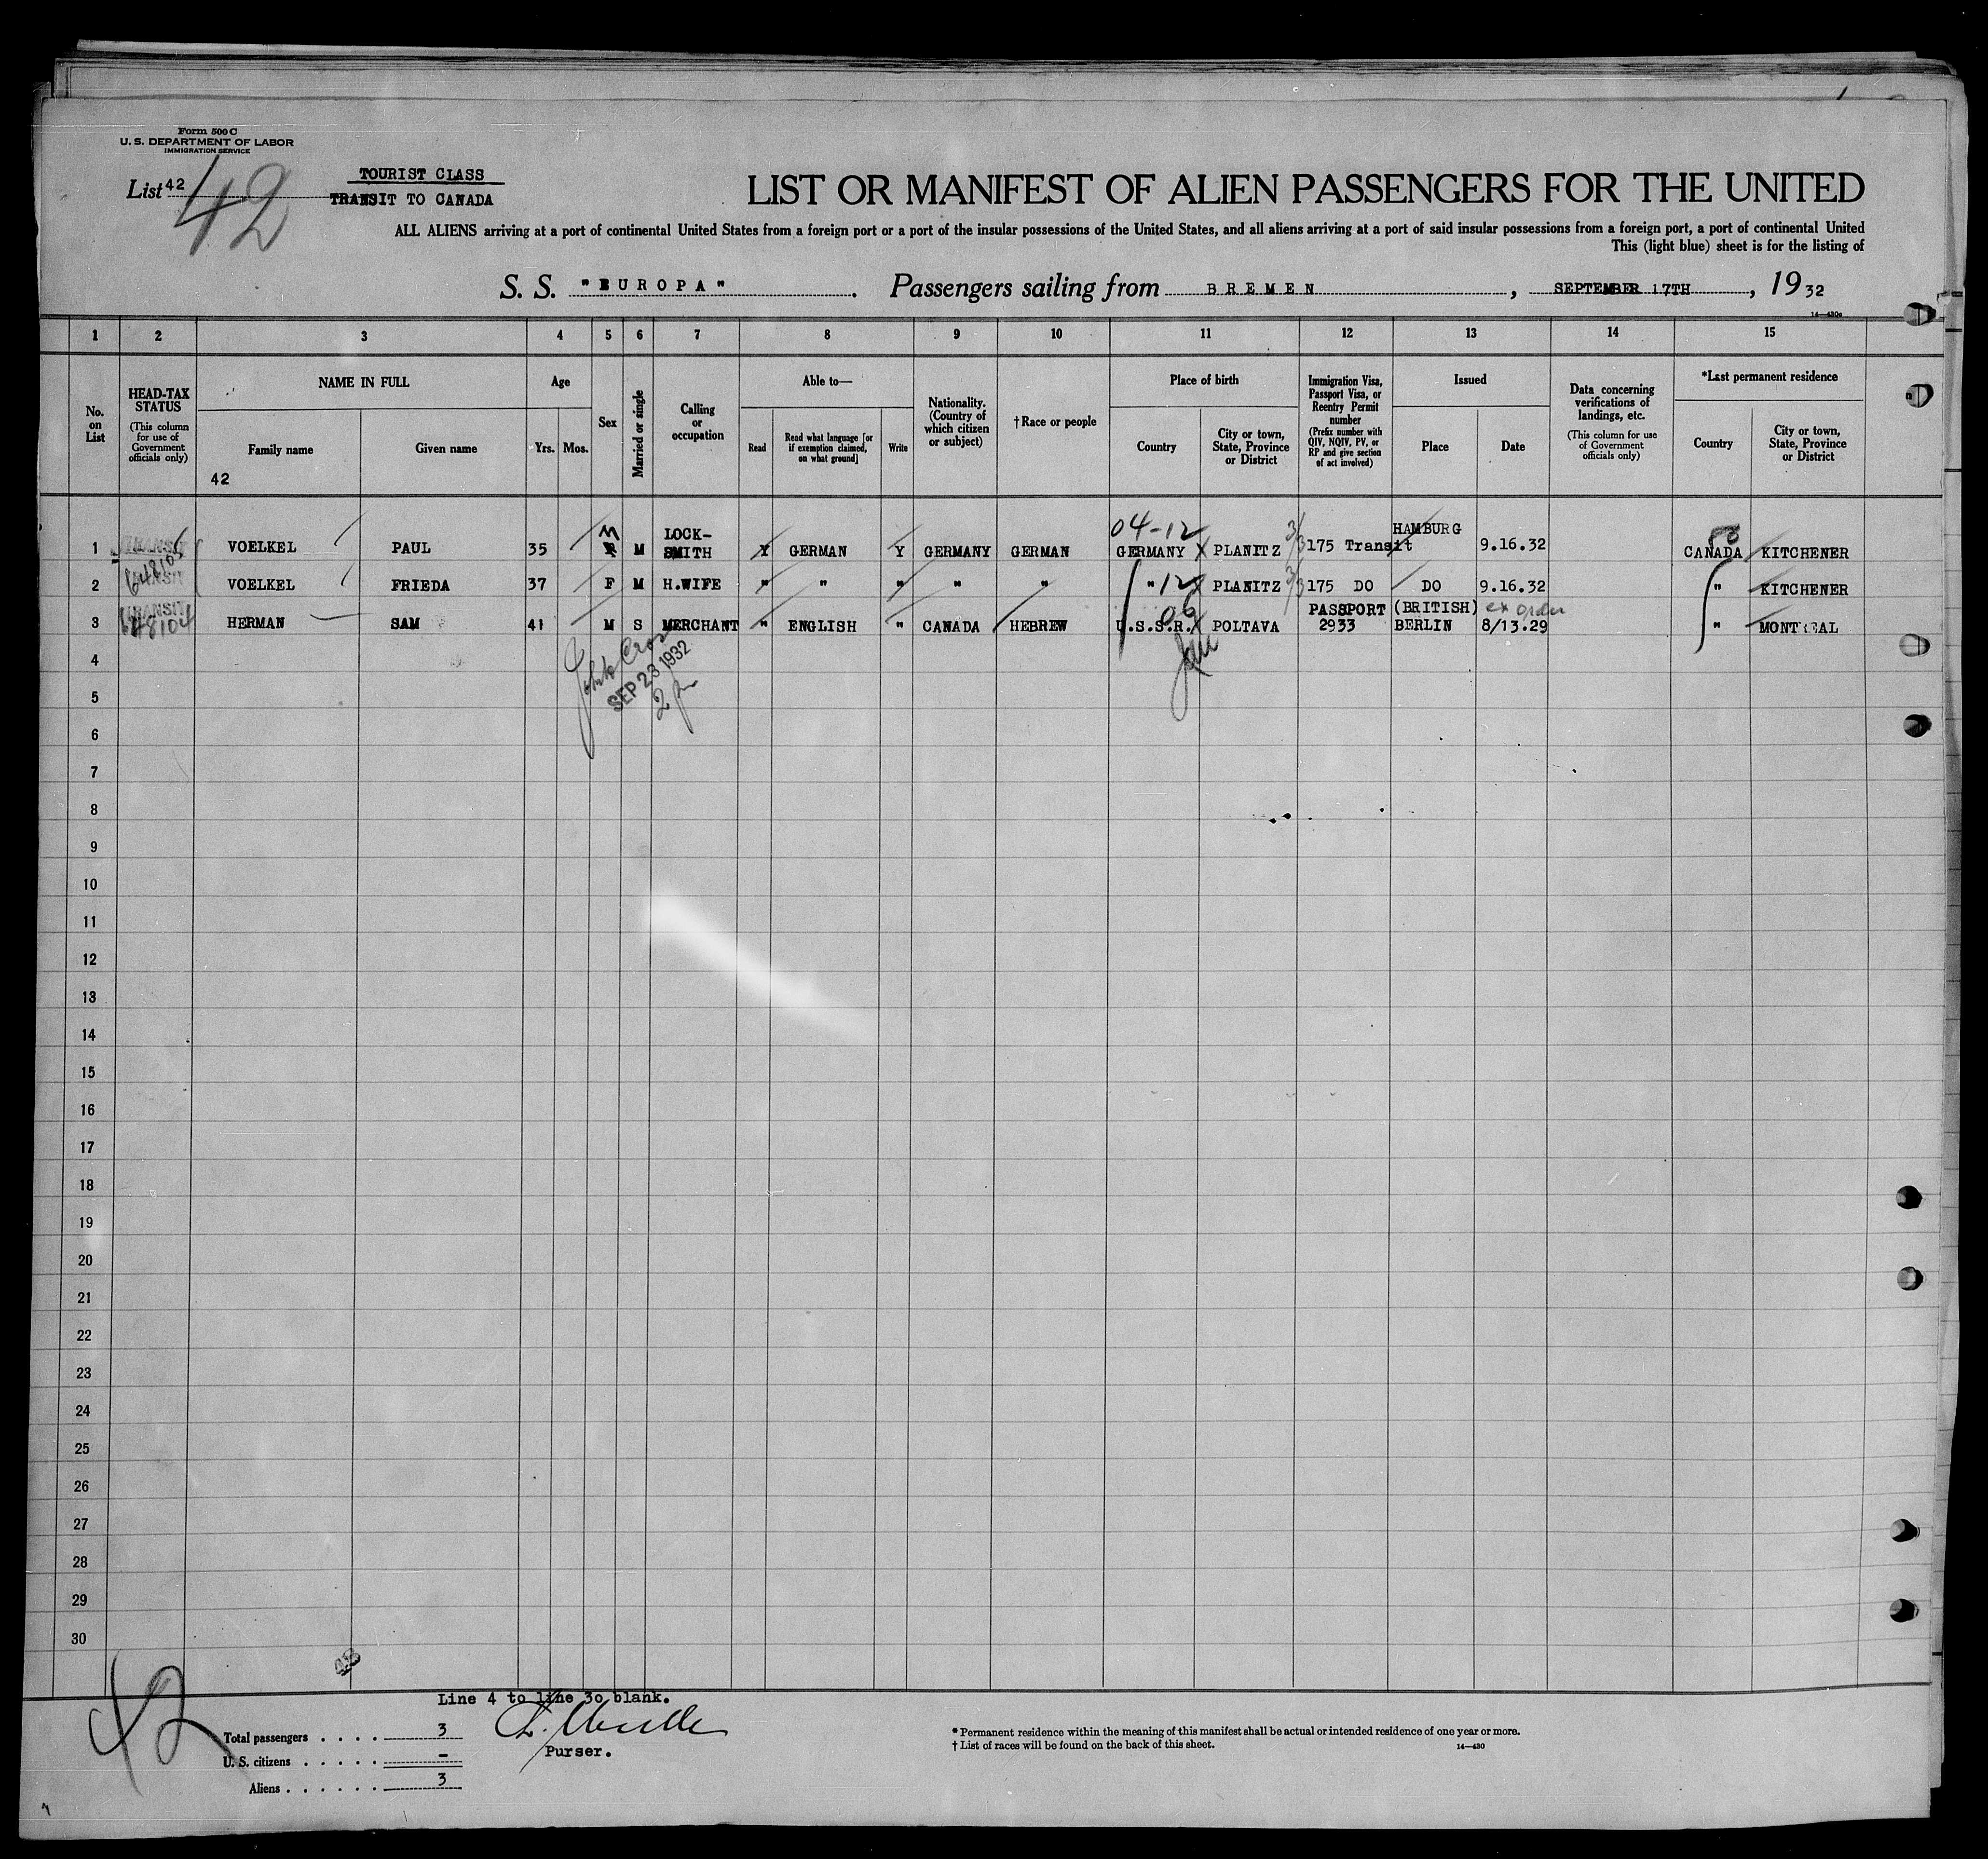 Form 500 C
U. S. DEPARTMENT OF LABOR
IMMIGRATION SERVICE
List 42
42
TOURIST CLASS
TRANSIT TO CANADA
LIST OR MANIFEST OF ALIEN PASSENGERS FOR THE UNITED
ALL ALIENS arriving at a port of continental United States from a foreign port or a port of the insular possessions of the United States, and all aliens arriving at a port of said insular possessions from a foreign port, a port of continental United
This (light blue) sheet is for the listing of
S. S. "EUROPA". Passengers sailing from BREMEN, SEPTEMBER 17TH, 1932
14—430a
1 2 3 4 5 6 7 8 9 10 11 12 13 14 15
No. on List
HEAD-TAX STATUS
(This column for use of Government officials only)
NAME IN FULL
Family name
Given name
42
Age
Yrs. Mos.
Sex
Married or single
Calling or occupation
Able to—
Read
Read what language [or if exemption claimed, on what ground]
Write
Nationality. (Country of which citizen or subject)
†Race or people
Place of birth
Country
City or town, State, Province or District
Immigration Visa, Passport Visa, or Reentry Permit number
(Prefix number with QIV, NQIV, PV, or RP and give section of act involved)
Issued
Place
Date
Data concerning verifications of landings, etc.
(This column for use of Government officials only)
*Last permanent residence
Country
City or town, State, Province or District
1 TRANSIT VOELKEL PAUL 35 M M LOCK-SMITH Y GERMAN Y GERMANY GERMAN 04-12 GERMANY X PLANITZ 3/3 175 Transit HAMBURG 9.16.32 CANADA KITCHENER
2 TRANSIT 648105 VOELKEL FRIEDA 37 F M H.WIFE " " " " " " 12 X PLANITZ 3/3 175 DO DO 9.16.32 " KITCHENER
3 TRANSIT 648104 HERMAN SAM 41 M S MERCHANT " ENGLISH " CANADA HEBREW 06 U.S.S.R. X POLTAVA PASSPORT 2933 (BRITISH) BERLIN ex order 8/13.29 " MONTREAL
SEP 23 1932
4
5
6
7
8
9
10
11
12
13
14
15
16
17
18
19
20
21
22
23
24
25
26
27
28
29
30
42
Line 4 to line 30 blank.
Total passengers . . . . 3
U. S. citizens . . . . . –
Aliens . . . . . . 3
Purser.
* Permanent residence within the meaning of this manifest shall be actual or intended residence of one year or more.
† List of races will be found on the back of this sheet.
14—430